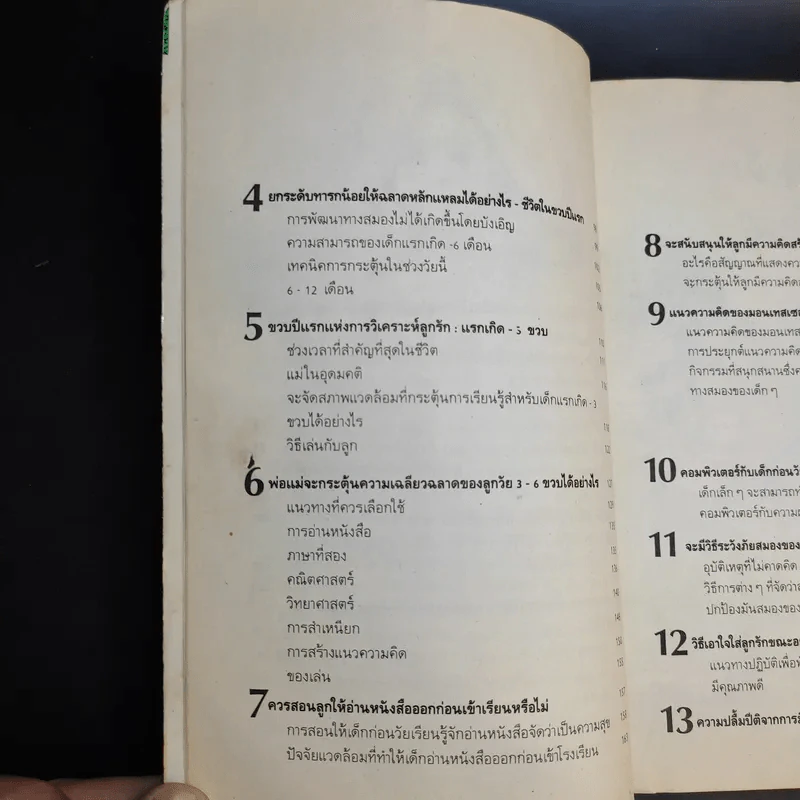 4 ยกระดับทารกน้อยให้ฉลาดหลักแหลมได้อย่างไร - ชีวิตในขวบปีแรก
การพัฒนาทางสมองไม่ได้เกิดขึ้นโดยบังเอิญ
ความสามารถของเด็กแรกเกิด -6 เดือน
เทคนิคการกระตุ้นในช่วงวัยนี้
6 - 12 เดือน
5 ขวบปีแรกแห่งการวิเคราะห์ลูกรัก : แรกเกิด - 3 ขวบ
ช่วงเวลาที่สำคัญที่สุดในชีวิต
แม่ในอุดมคติ
จะจัดสภาพแวดล้อมที่กระตุ้นการเรียนรู้สำหรับเด็กแรกเกิด -3
ขวบได้อย่างไร
วิธีเล่นกับลูก
6 พ่อแม่จะกระตุ้นความเฉลียวฉลาดของลูกวัย 3 - 6 ขวบได้อย่างไร
แนวทางที่ควรเลือกใช้
การอ่านหนังสือ
ภาษาที่สอง
คณิตศาสตร์
วิทยาศาสตร์
การสำเหนียก
การสร้างแนวความคิด
ของเล่น
7 ควรสอนลูกให้อ่านหนังสือออกก่อนเข้าเรียนหรือไม่
การสอนให้เด็กก่อนวัยเรียนรู้จักอ่านหนังสือจัดว่าเป็นความสุข
ปัจจัยแวดล้อมที่ทำให้เด็กอ่านหนังสือออกก่อนเข้าโรงเรียน
8 จะสนับสนุนให้ลูกมีความคิดสร้
อะไรคือสัญญาณที่แสดงคว
จะกระตุ้นให้ลูกมีความคิด
9 แนวความคิดของมอนเทสเซอ
แนวความคิดของมอนเทส
การประยุกต์แนวความคิด
กิจกรรมที่สนุกสนานซึ่ง
ทางสมองของเด็ก ๆ
10 คอมพิวเตอร์กับเด็กก่อนวั
เด็กเล็ก ๆ จะสามารถ
คอมพิวเตอร์กับความ
11 จะมีวิธีระวังภัยสมองของ
อุบัติเหตุที่ไม่คาดคิด
วิธีการต่าง ๆ ที่จัดว่า
ปกป้องมันสมองของ
12 วิธีเอาใจใส่ลูกรักขณะ
แนวทางปฏิบัติเพื่อ
มีคุณภาพดี
13 ความปลื้มปีติจากการ